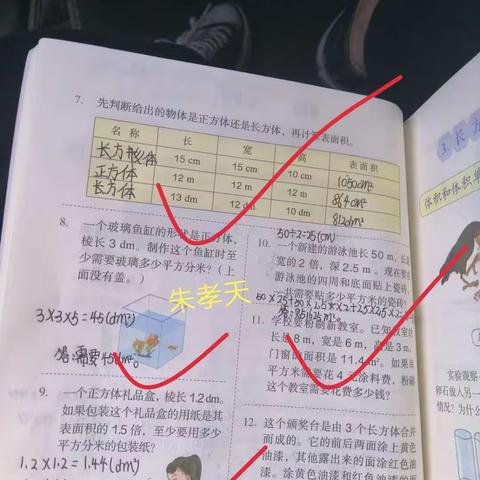 7. 先判断给出的物体是正方体还是长方体，再计算表面积。
名称 长 宽 高 表面积
长方形体 15 cm 15 cm 10 cm 1050cm²
正方体 12 m 12 m 12 m 864cm²
长方体 13 dm 12 dm 10 dm 812dm²
8. 一个玻璃鱼缸的形状是正方体，
棱长 3 dm。制作这个鱼缸时至
少需要玻璃多少平方分米？（上
面没有盖。）
朱孝天
3×3×5=45(dm²)
答:需要45dm²。
9. 一个正方体礼品盒，棱长 1.2 dm。
如果包装这个礼品盒的用纸是其
表面积的 1.5 倍，至少要用多少
平方分米的包装纸？
1.2×1.2=1.44(dm²)
50÷2=25(cm)
10. 一个新建的游泳池长 50 m，长是
宽的 2 倍，深 2.5 m。现在要在
游泳池的四周和底面贴上瓷砖，
一共需要贴多少平方米的瓷砖？
11. 学校要粉刷新教室。已知教室的
长是 8 m，宽是 6 m，高是 3 m，
门窗的面积是 11.4 m²。如果每
平方米需要花 4 元涂料费，粉刷
这个教室需要花费多少钱？
12. 这个颁奖台是由 3 个长方体合并
而成的。它的前后两面涂上黄色
油漆，其他露出来的面涂红色油
漆。涂黄色油漆和红色油漆的面
3. 长方
体积和体积单
实验观察